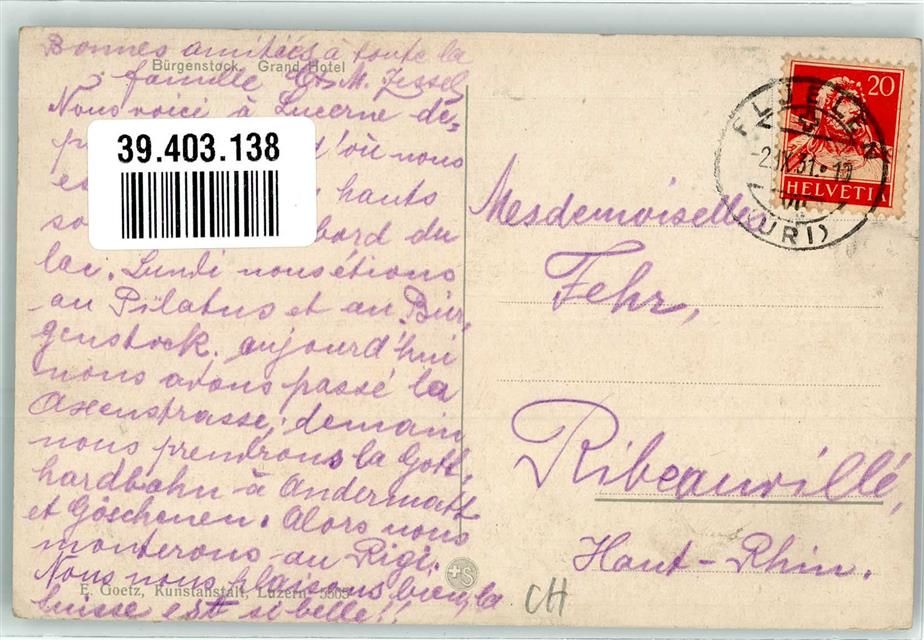 Bonnes amitiés à toute la
Bürgenstock, Grand Hotel
famille & M. Jessel
Nous voici à Lucerne de-
39.403.138
d'où nous
hauts
bord du
lac. Lundi nous étions
au Pilatus et au Bür-
genstock. aujourd'hui
nous avons passé la
Axenstrasse; demain
nous prendrons la Gott-
hardbahn à Andermatt
et Göschenen. Alors nous
monterons au Rigi.
Nous nous plaisons bien, la
E. Goetz, Kunstanstalt, Luzern 5505
Suisse est si belle!!
+S
20
HELVETIA
FLÜELEN
-2.IX.31·10
VII
(URI)
Mesdemoiselles
Fehr,
Ribeauvillé,
Haut-Rhin.
CH